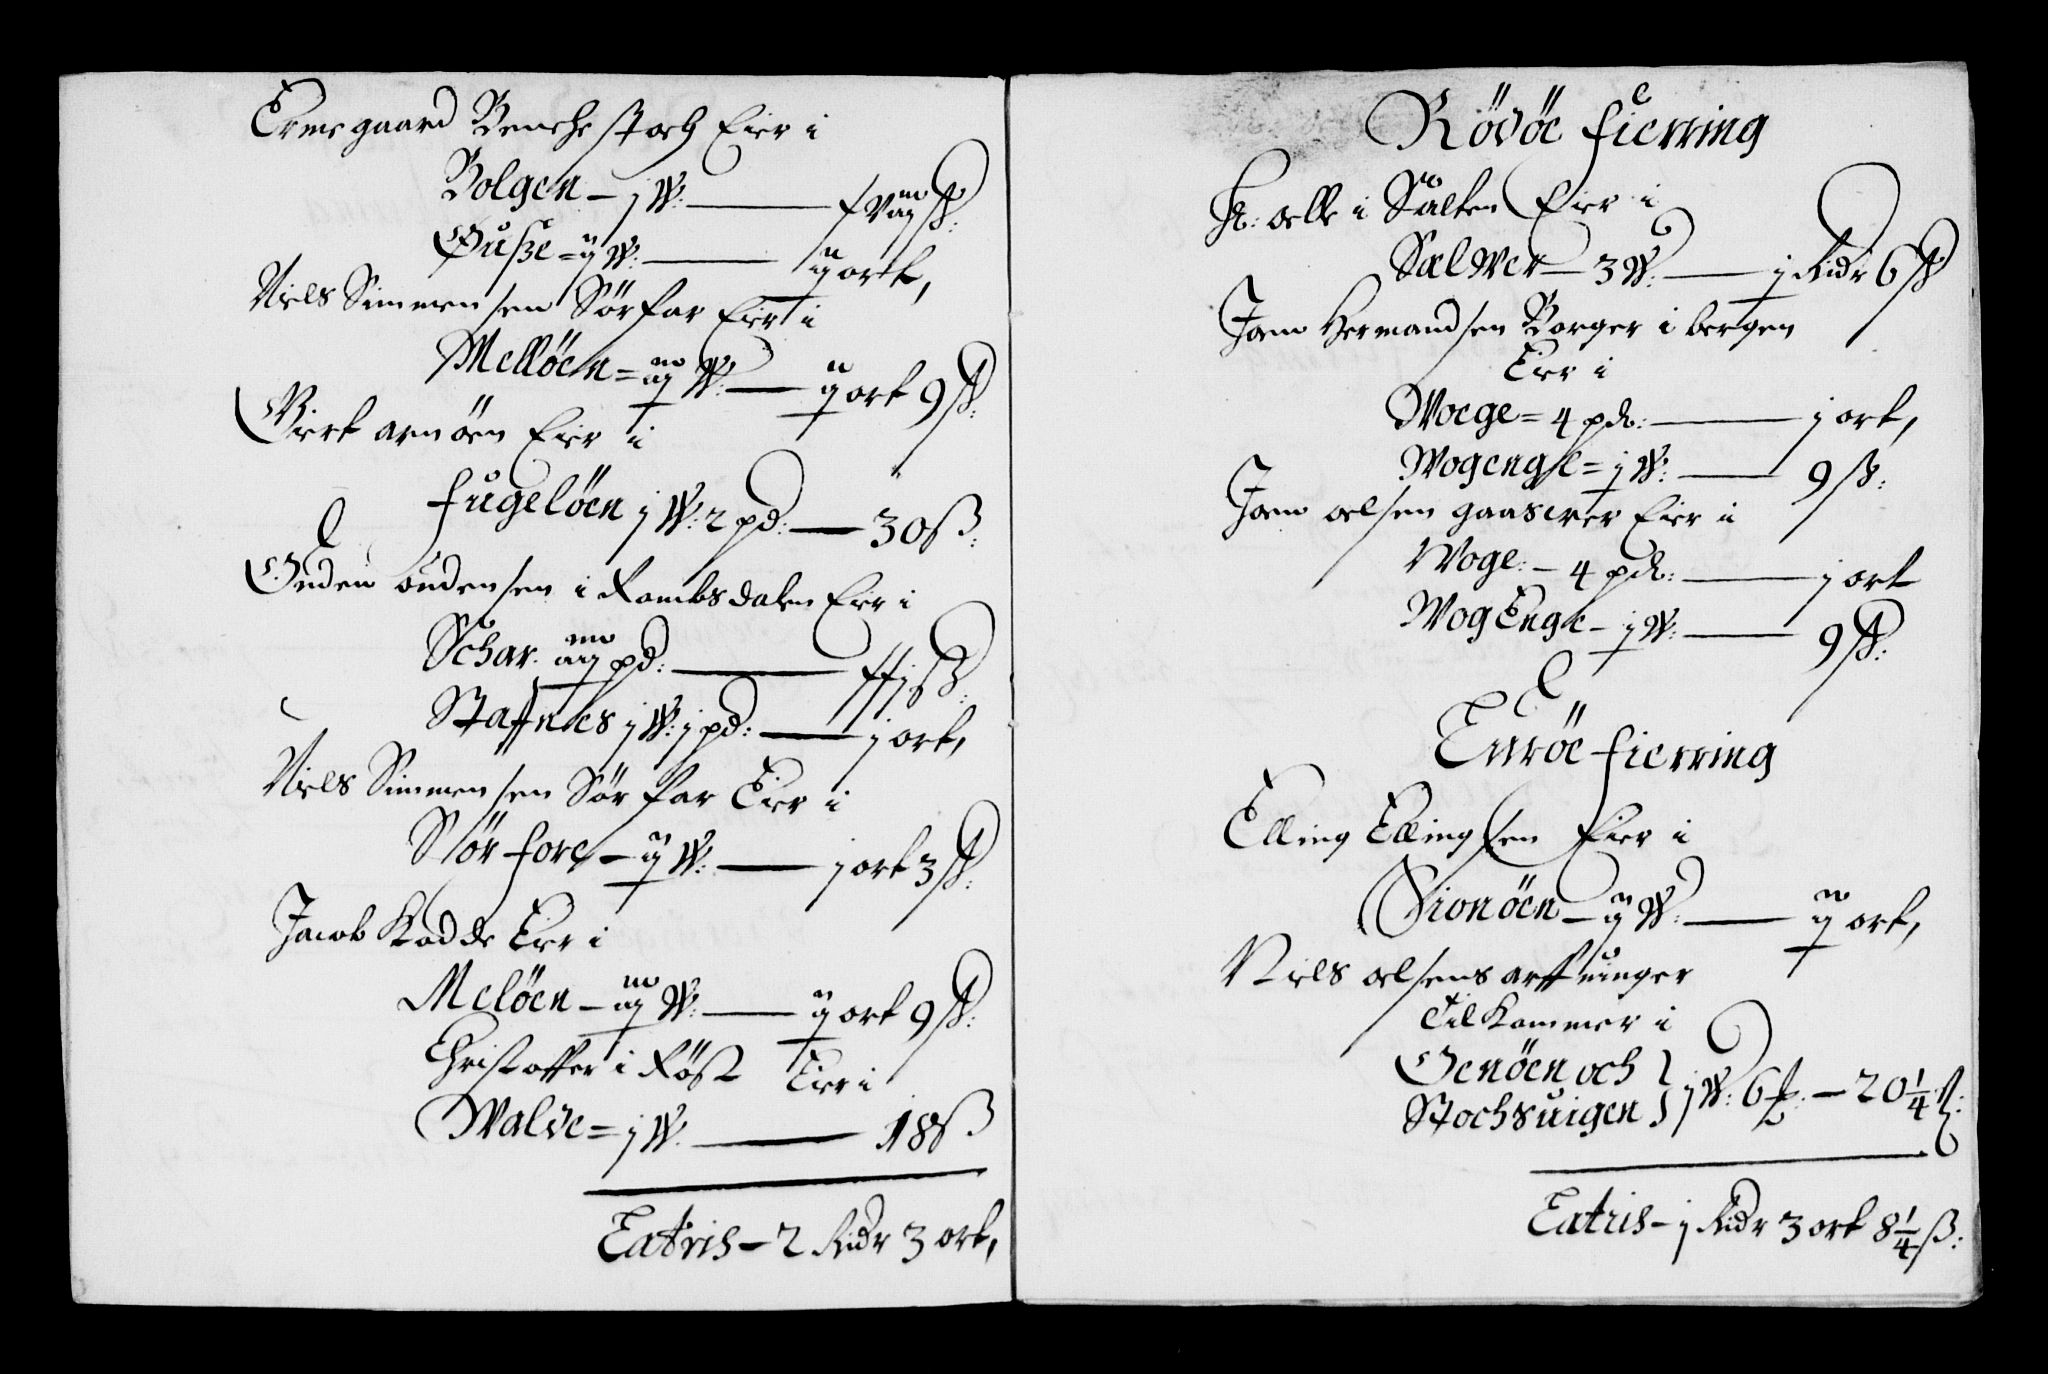 Ermegaard Benchestoch Eier i
Bolgen – j W: — xviij ß:
Gusße = ij W: — ij ortt,
Niels Simmensen Sörfar Eier i
Mellöen = iij W: — ij ort 9 ß:
Giert arnöen Eier i
fugelöen j W: 2 pd: — 30 ß:
Ouden oudensen i Rombsdalen Eier i
Schar. iiij pd: — xxj ß:
Stafnes j W: j pd: — j ort,
Niels Simmensen Sörfar Eier i
Sör fore – ij W: — j ort 3 ß:
Jacob Kodde Eier i
Melöen – iij W: — ij ort 9 ß:
Christoffer i Röst Eier i
Walde = j W. — 18 ß
Latris – 2 Ridr 3 ort,
Rödöe fierring
Hr: olle i Salten Eier i
Sælwer – 3 W: — j Ridr 6 ß
Jan Hermandsen Borger i bergen
Eier i
Woege = 4 pd: — j ort,
Wogenge = j W: — 9 ß:
Jon olsen gaasvær Eier i
Woge: – 4 pd: — j ort
WogEnge – j W: — 9 ß:
Luröe fierring
Elling Ellingsen Eier i
Sionöen – ij W: — ij ort,
Niels olsens arffuinger
Til Kommer i
Genöen och
Stochsuigen } j W: 6 — 20 1/4 ß:
Latris – j Ridr 3 ort 8 1/4 ß: